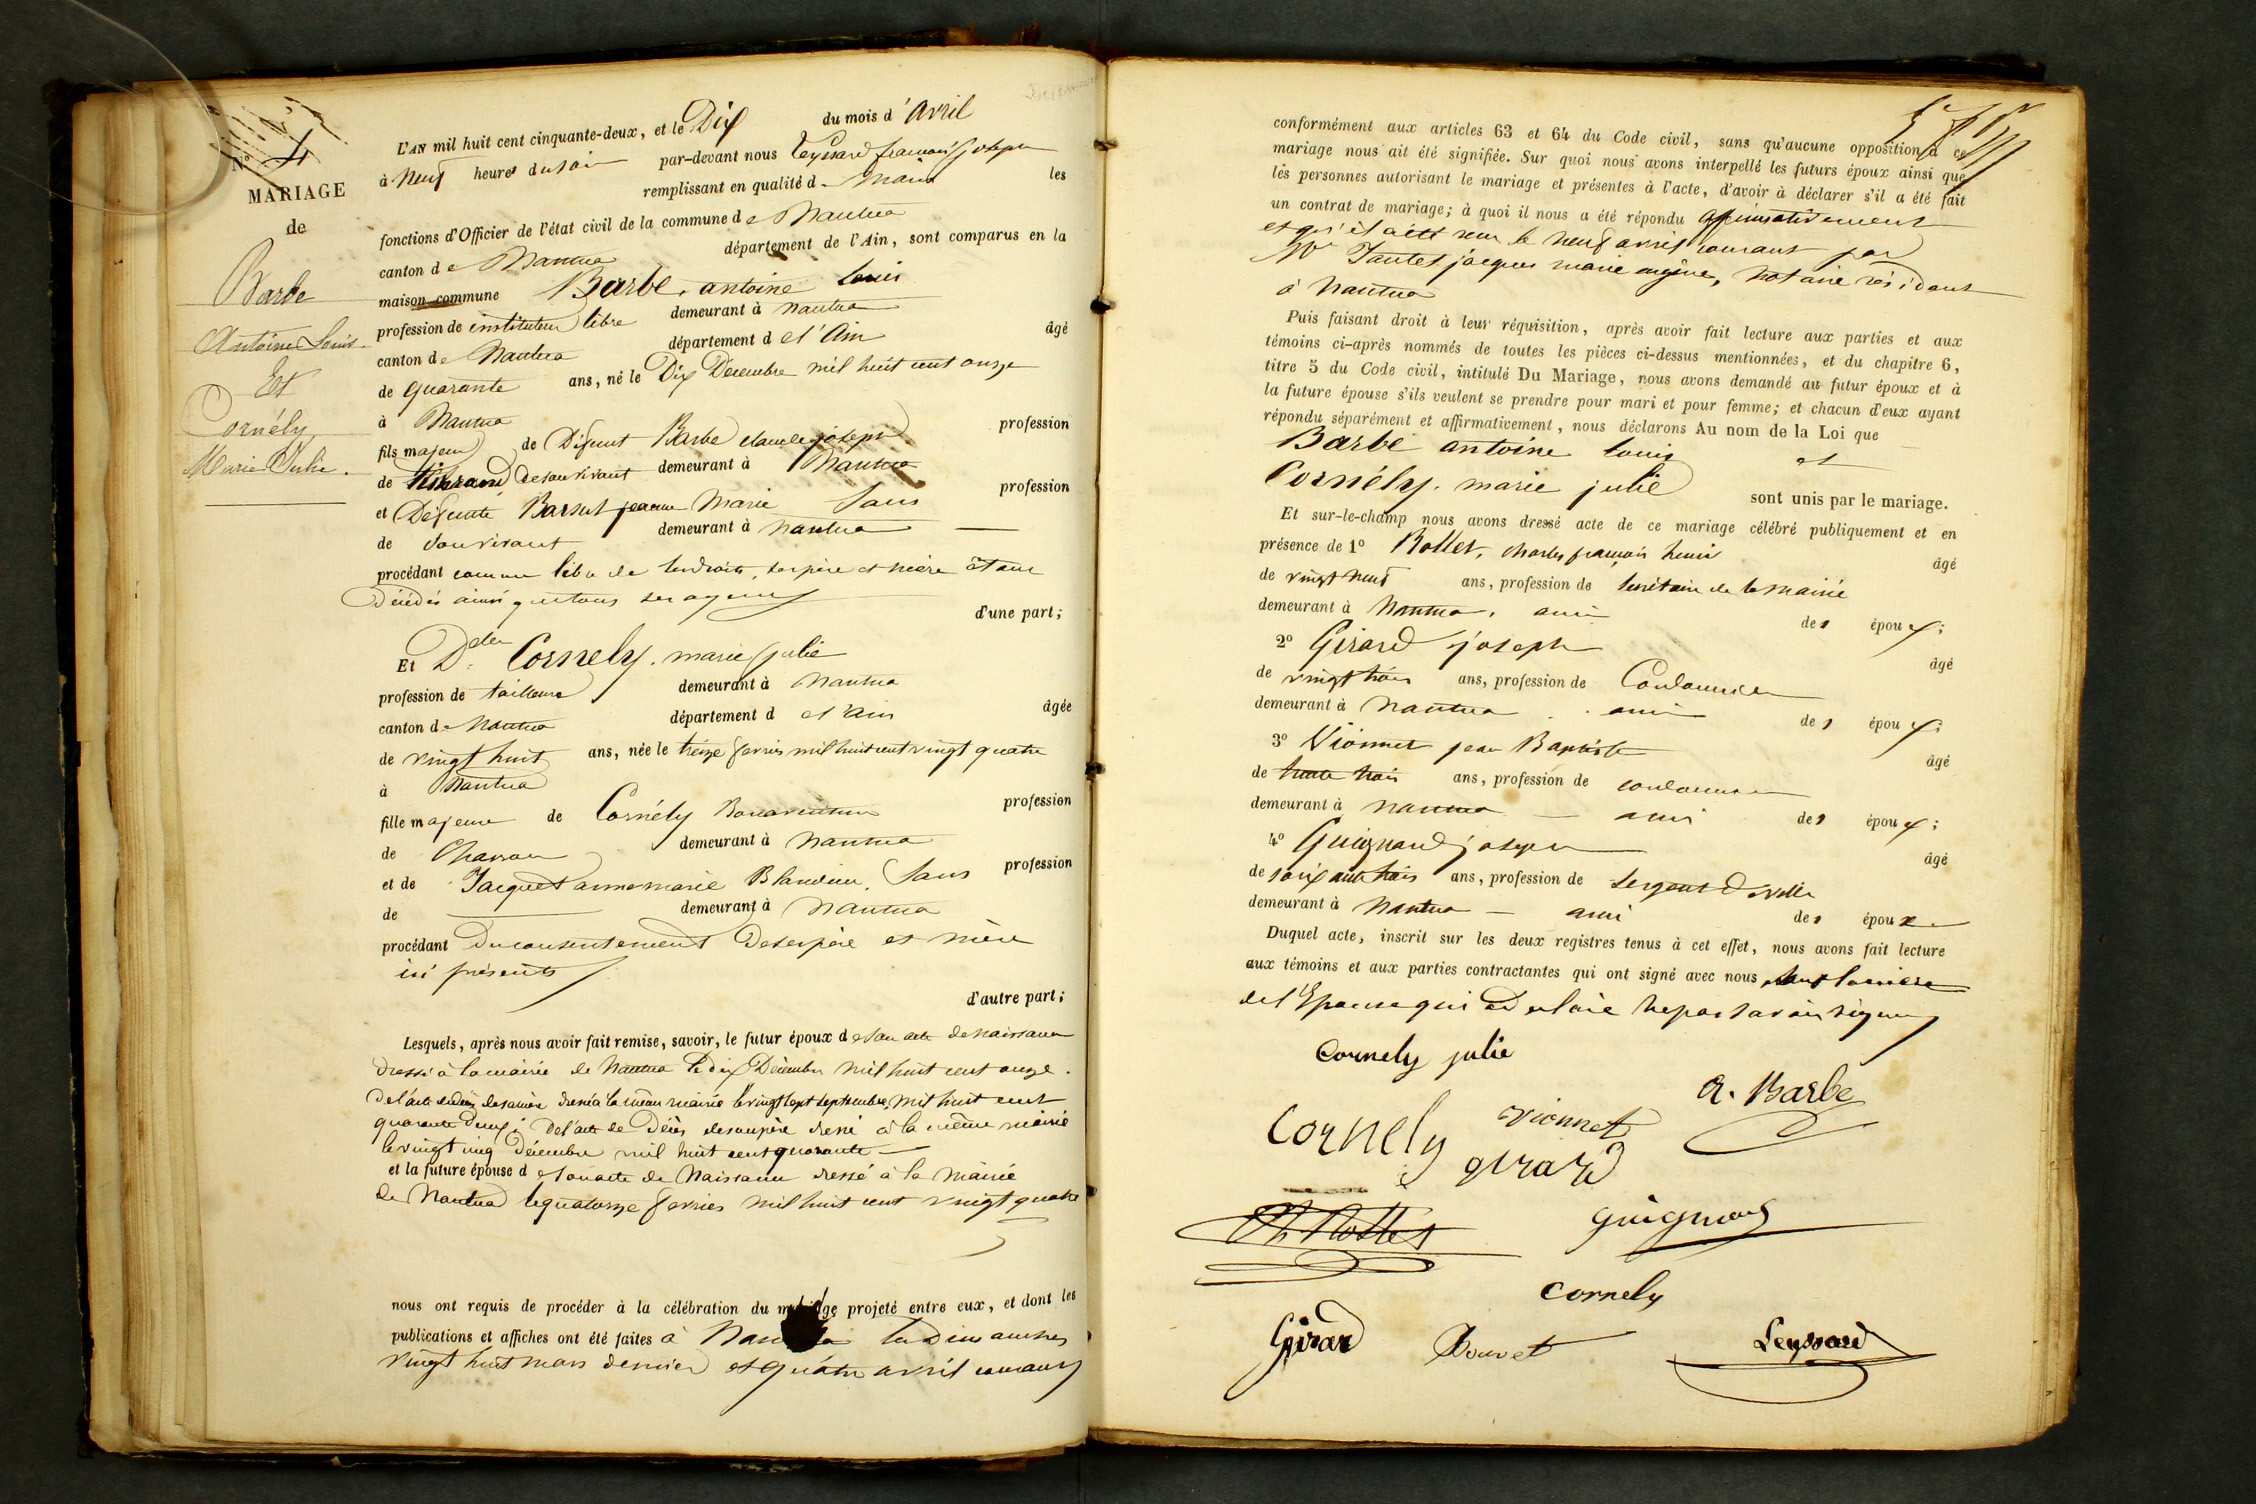 N° 4
MARIAGE
de
Barbe
Antoine Louis.
Et
Cornély
Marie Julie.
L'AN mil huit cent cinquante-deux, et le Dix du mois d'avril
à neuf heures du soir par-devant nous Leyssard françois Joseph
remplissant en qualité de Maire les
fonctions d'Officier de l'état civil de la commune de Nantua
canton de Nantua département de l'Ain, sont comparus en la
maison commune Barbe, antoine louis
profession de instituteur libre demeurant à nantua
canton de Nantua département de l'Ain âgé
de quarante ans, né le Dix Décembre mil huit cent onze
à Nantua
fils majeur de Défunt Barbe claude joseph profession
de de son vivant demeurant à Nantua
et Défunte Barsut jeanne Marie Sans profession
de son vivant demeurant à nantua
procédant comme libre de ses droits, ses père et mère étant
Décédés ainsi que tous ses ayeux
d'une part;
Et Dlle Cornely. marie julie
profession de tailleuse demeurant à Nantua
canton de Nantua département de l'Ain âgée
de vingt huit ans, née le treize fevrier mil huit cent vingt quatre
à Nantua
fille majeure de Cornély Bonaventure profession
de Charron demeurant à Nantua
et de Jacquet anne marie Blandine, Sans profession
de demeurant à Nantua
procédant du consentement de ses père et mère
ici présents
d'autre part;
Lesquels, après nous avoir fait remise, savoir, le futur époux de son acte de naissance
dressé à la mairie de Nantua le dix Décembre mil huit cent onze.
De l'acte de décès de sa mère dressé à la même mairie le vingt sept septembre mil huit cent
quarante deux; De l'acte de Décès de son père dressé à la même mairie
le vingt cinq décembre mil huit cent quarante
et la future épouse de son acte de Naissance dressé à la mairie
de Nantua le quatorze fevrier mil huit cent vingt quatre
nous ont requis de procéder à la célébration du mariage projeté entre eux, et dont les
publications et affiches ont été faites à Nantua les Dimanches
vingt huit mars dernier et quatre avril courant
conformément aux articles 63 et 64 du Code civil, sans qu'aucune opposition à ce
mariage nous ait été signifiée. Sur quoi nous avons interpellé les futurs époux ainsi que
les personnes autorisant le mariage et présentes à l'acte, d'avoir à déclarer s'il a été fait
un contrat de mariage; à quoi il nous a été répondu affirmativement
et qu'il a été reçu le neuf avril courant par
Me Tantet jacques marie eugène, notaire résidant
à Nantua
Puis faisant droit à leur réquisition, après avoir fait lecture aux parties et aux
témoins ci-après nommés de toutes les pièces ci-dessus mentionnées, et du chapitre 6,
titre 5 du Code civil, intitulé Du Mariage, nous avons demandé au futur époux et à
la future épouse s'ils veulent se prendre pour mari et pour femme; et chacun d'eux ayant
répondu séparément et affirmativement, nous déclarons Au nom de la Loi que
Barbe antoine louis et
Cornély. marie julie sont unis par le mariage.
Et sur-le-champ nous avons dressé acte de ce mariage célébré publiquement et en
présence de 1° Rottet, charles françois henri âgé
de vingt neuf ans, profession de secrétaire de la mairie
demeurant à Nantua, ami des époux;
2° Girard joseph âgé
de vingt trois ans, profession de Cordonnier
demeurant à Nantua ami des époux;
3° Vionnet jean Baptiste âgé
de trente trois ans, profession de cordonnier
demeurant à Nantua ami des époux;
4° Guignard joseph âgé
de soixante trois ans, profession de sergent de ville
demeurant à Nantua ami des époux
Duquel acte, inscrit sur les deux registres tenus à cet effet, nous avons fait lecture
aux témoins et aux parties contractantes qui ont signé avec nous sauf la mère
de l'Epouse qui a déclaré ne pas savoir signer
Cornely julie
A. Barbe
Cornely vionnet
girard
Ch. Rottet
guignard
Cornely
Girard Bouvet Leyssard